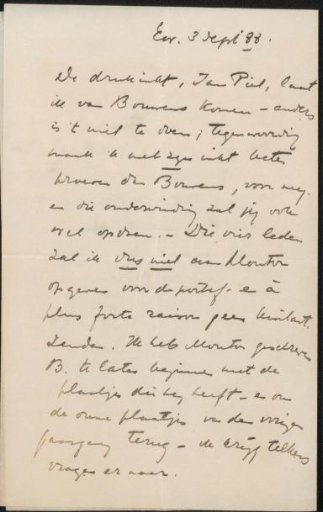 3 Sept 88.
De drukinkt, Jan Piet, laat
ik van Bouwens komen - anders
is 't niet te doen; tegenwoordig
maak ik met zijn inkt beter
proeven dan Bouwens, voor mij.
en die ondervinding zal jij ook
wel opdoen. - Die vier leden
zal ik dus niet aan Mouton
opgeven voor de portef. - e à
plus forte raison geen
zenden. Ik heb Mouton geschreven
B. te laten beginnen met de
plaatjes die hij heeft - en om
de oude plaatjes van den vorigen
jaargang terug - ik krijg telkens
vragen er naar.